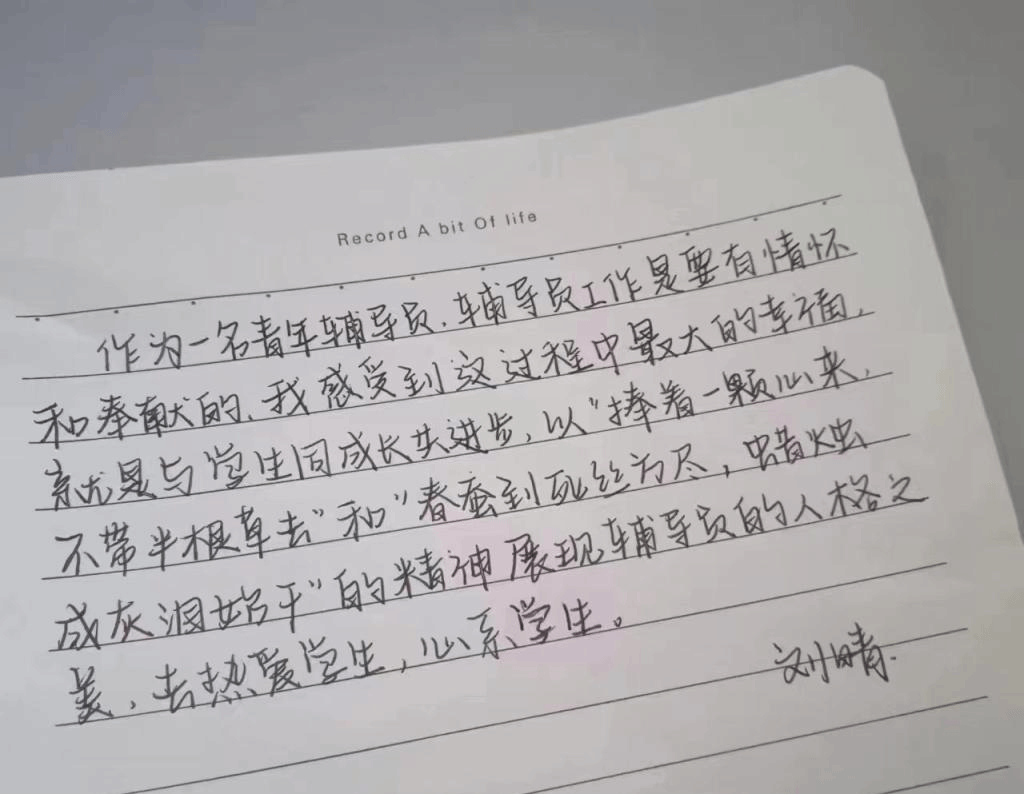 Record A bit Of life
作为一名青年辅导员,辅导员工作是要有情怀
和奉献的,我感受到这过程中最大的幸福,
就是与学生同成长共进步,以"捧着一颗心来,
不带半根草去"和"春蚕到死丝方尽,蜡烛
成灰泪始干"的精神展现辅导员的人格之
美,去热爱学生,心系学生。
刘晴.